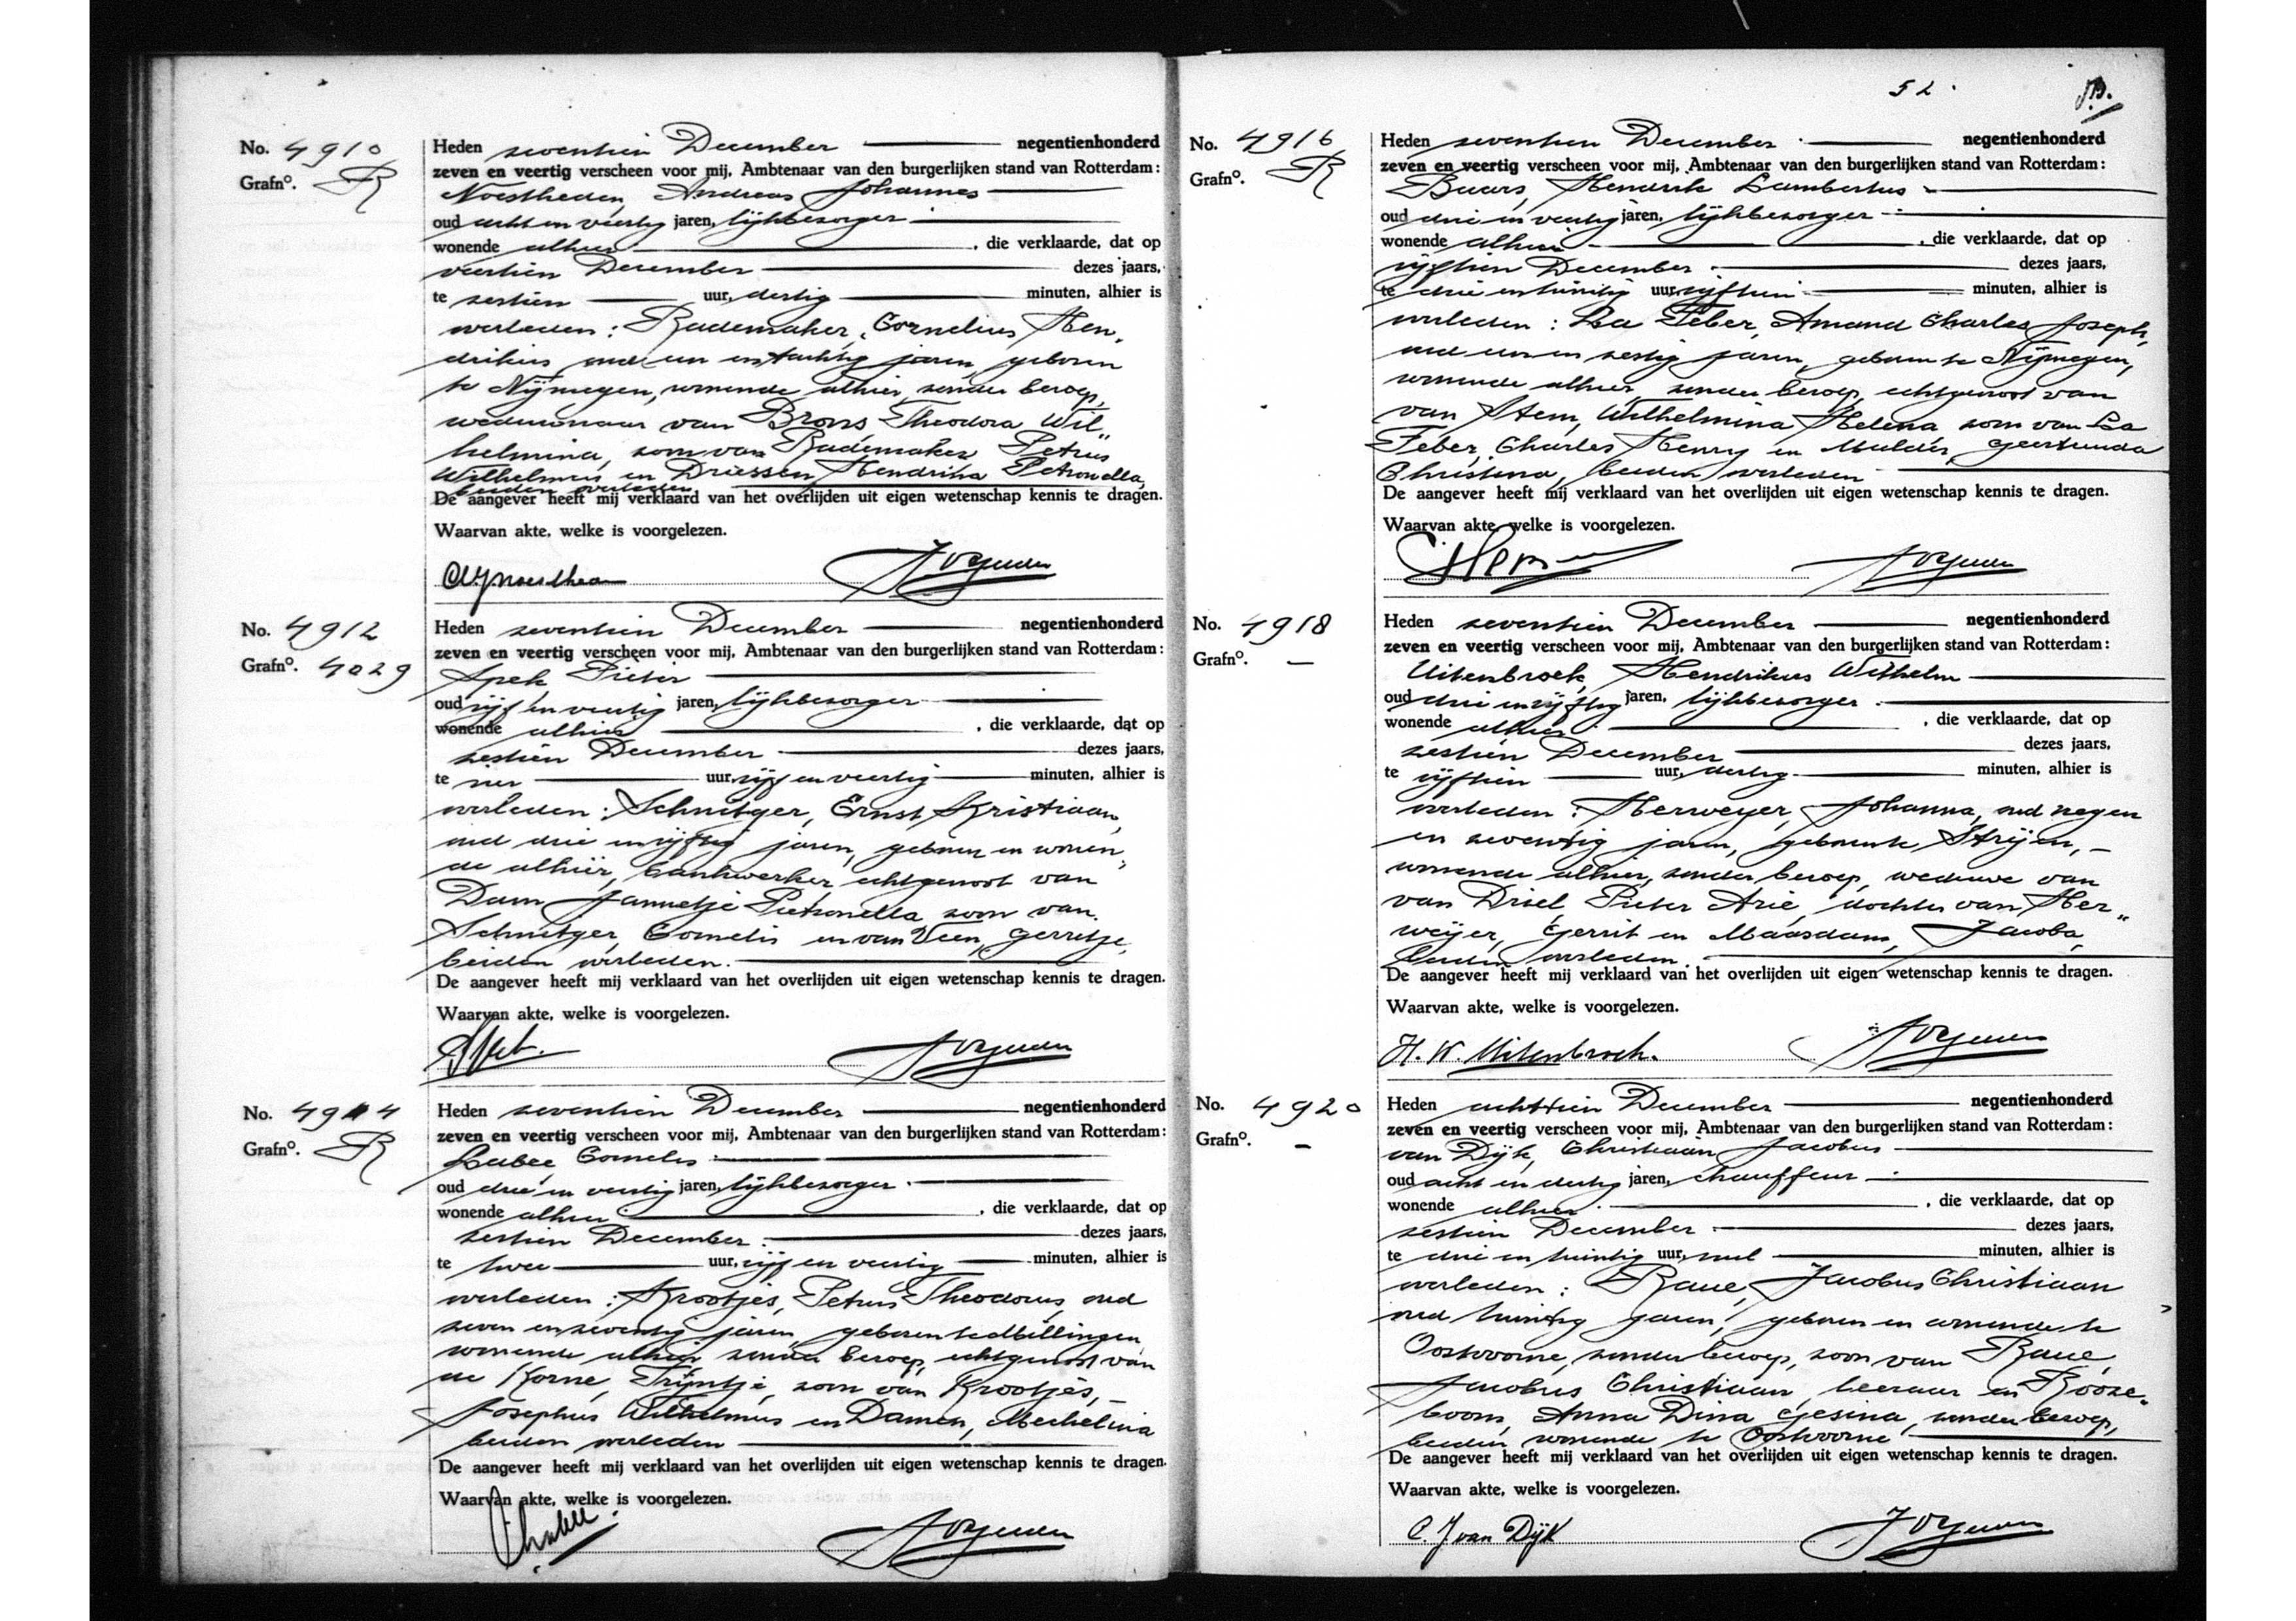 No. 4910
Grafno. R
Heden zeventien December negentienhonderd
zeven en veertig verscheen voor mij, Ambtenaar van den burgerlijken stand van Rotterdam:
Noestheden, Andreas Johannes
oud acht en veertig jaren, lijkbezorger
wonende alhier, die verklaarde, dat op
veertien December dezes jaars,
te zestien uur, dertig minuten, alhier is
overleden: Rademaker, Cornelius Hen„
drikus oud een en tachtig jaren, geboren
te Nijmegen, wonende alhier, zonder beroep,
weduwnaar van Brons Theodora Wil„
helmina, zoon van Rademaker Petrus
Wilhelmus en Driessen, Hendrina Petronella,
beiden overleden
De aangever heeft mij verklaard van het overlijden uit eigen wetenschap kennis te dragen.
Waarvan akte, welke is voorgelezen.
No. 4912
Grafno. 4029
Heden zeventien December negentienhonderd
zeven en veertig verscheen voor mij, Ambtenaar van den burgerlijken stand van Rotterdam:
Spek Pieter
oud vijf en veertig jaren, lijkbezorger
wonende alhier, die verklaarde, dat op
zestien December dezes jaars,
te vier uur, vijf en veertig minuten, alhier is
overleden: Schnitger, Ernst Kristiaan,
oud drie en vijftig jaren, geboren en wonen„
de alhier, bankwerker, echtgenoot van
Dam Jannetje Pietronella zoon van
Schnitger, Cornelis en van Veen, Gerretje,
beiden overleden.
De aangever heeft mij verklaard van het overlijden uit eigen wetenschap kennis te dragen.
Waarvan akte, welke is voorgelezen.
No. 4914
Grafno. R
Heden zeventien December negentienhonderd
zeven en veertig verscheen voor mij, Ambtenaar van den burgerlijken stand van Rotterdam:
Labee Cornelis
oud drie en veertig jaren, lijkbezorger
wonende alhier, die verklaarde, dat op
zestien December dezes jaars,
te twee uur, vijf en veertig minuten, alhier is
overleden: Krootjes, Petrus Theodorus, oud
zeven en zeventig jaren, geboren te
wonende alhier, zonder beroep, echtgenoot van
de Korne, Trijntje, zoon van Krootjes,
Josephus Wilhelmus en Damen, Mechelina
beiden overleden
De aangever heeft mij verklaard van het overlijden uit eigen wetenschap kennis te dragen.
Waarvan akte, welke is voorgelezen.
52.
No. 4916
Grafno. R
Heden zeventien December negentienhonderd
zeven en veertig verscheen voor mij, Ambtenaar van den burgerlijken stand van Rotterdam:
Buurs, Hendrik Lambertus
oud drie en veertig jaren, lijkbezorger
wonende alhier, die verklaarde, dat op
vijftien December dezes jaars,
te drie en twintig uur, vijftien minuten, alhier is
overleden: La Feber, Amand Charles Joseph,
oud een en zestig jaren, geboren te Nijmegen,
wonende alhier, zonder beroep, echtgenoot van
van Stem, Wilhelmina Helena zoon van La
Feber, Charles Henry en Mulder, Geertruida
Christina, beiden overleden
De aangever heeft mij verklaard van het overlijden uit eigen wetenschap kennis te dragen.
Waarvan akte, welke is voorgelezen.
No. 4918
Grafno. —
Heden zeventien December negentienhonderd
zeven en veertig verscheen voor mij, Ambtenaar van den burgerlijken stand van Rotterdam:
Uitenbroek, Hendrikus Wilhelm
oud drie en vijftig jaren, lijkbezorger
wonende alhier, die verklaarde, dat op
zestien December dezes jaars,
te vijftien uur, dertig minuten, alhier is
overleden: Herweyer, Johanna, oud negen
en zeventig jaren, geboren te Strijen,
wonende alhier, zonder beroep, weduwe van
van Driel Pieter Arie, dochter van Her„
weijer, Gerrit en Maasdam, Jacoba,
beiden overleden.
De aangever heeft mij verklaard van het overlijden uit eigen wetenschap kennis te dragen.
Waarvan akte, welke is voorgelezen.
H. W. Uitenbroek.
No. 4920
Grafno. —
Heden achttien December negentienhonderd
zeven en veertig verscheen voor mij, Ambtenaar van den burgerlijken stand van Rotterdam:
van Dijk, Christiaan Jacobus
oud acht en dertig jaren, chauffeur
wonende alhier, die verklaarde, dat op
zestien December dezes jaars,
te drie en twintig uur, nul minuten, alhier is
overleden: Raue, Jacobus Christiaan
oud twintig jaren, geboren en wonende te
Oostvoorne, zonder beroep, zoon van Raue,
Jacobus Christiaan, leeraar en Rooze„
boom, Anna Dina Gesina, zonder beroep,
beiden wonende te Oostvoorne
De aangever heeft mij verklaard van het overlijden uit eigen wetenschap kennis te dragen.
Waarvan akte, welke is voorgelezen.
C. J van Dijk